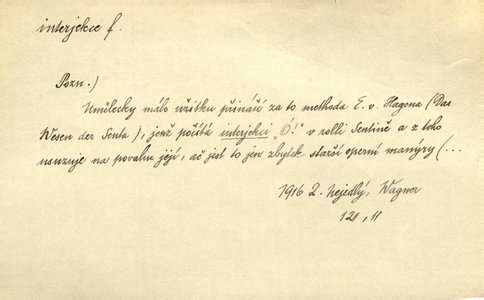 interjekce f.
Pozn.)
Umělecky málo užitku přináší za to methoda E. v. Hagena (Das
Wesen der Senta), jenž počítá interjekci „Ó!" v rolli Sentině a z toho
usuzuje na povahu její, ač jest to jen zbytek starší operní manýry (...
1916 Z. Nejedlý, Wagner
121, 11